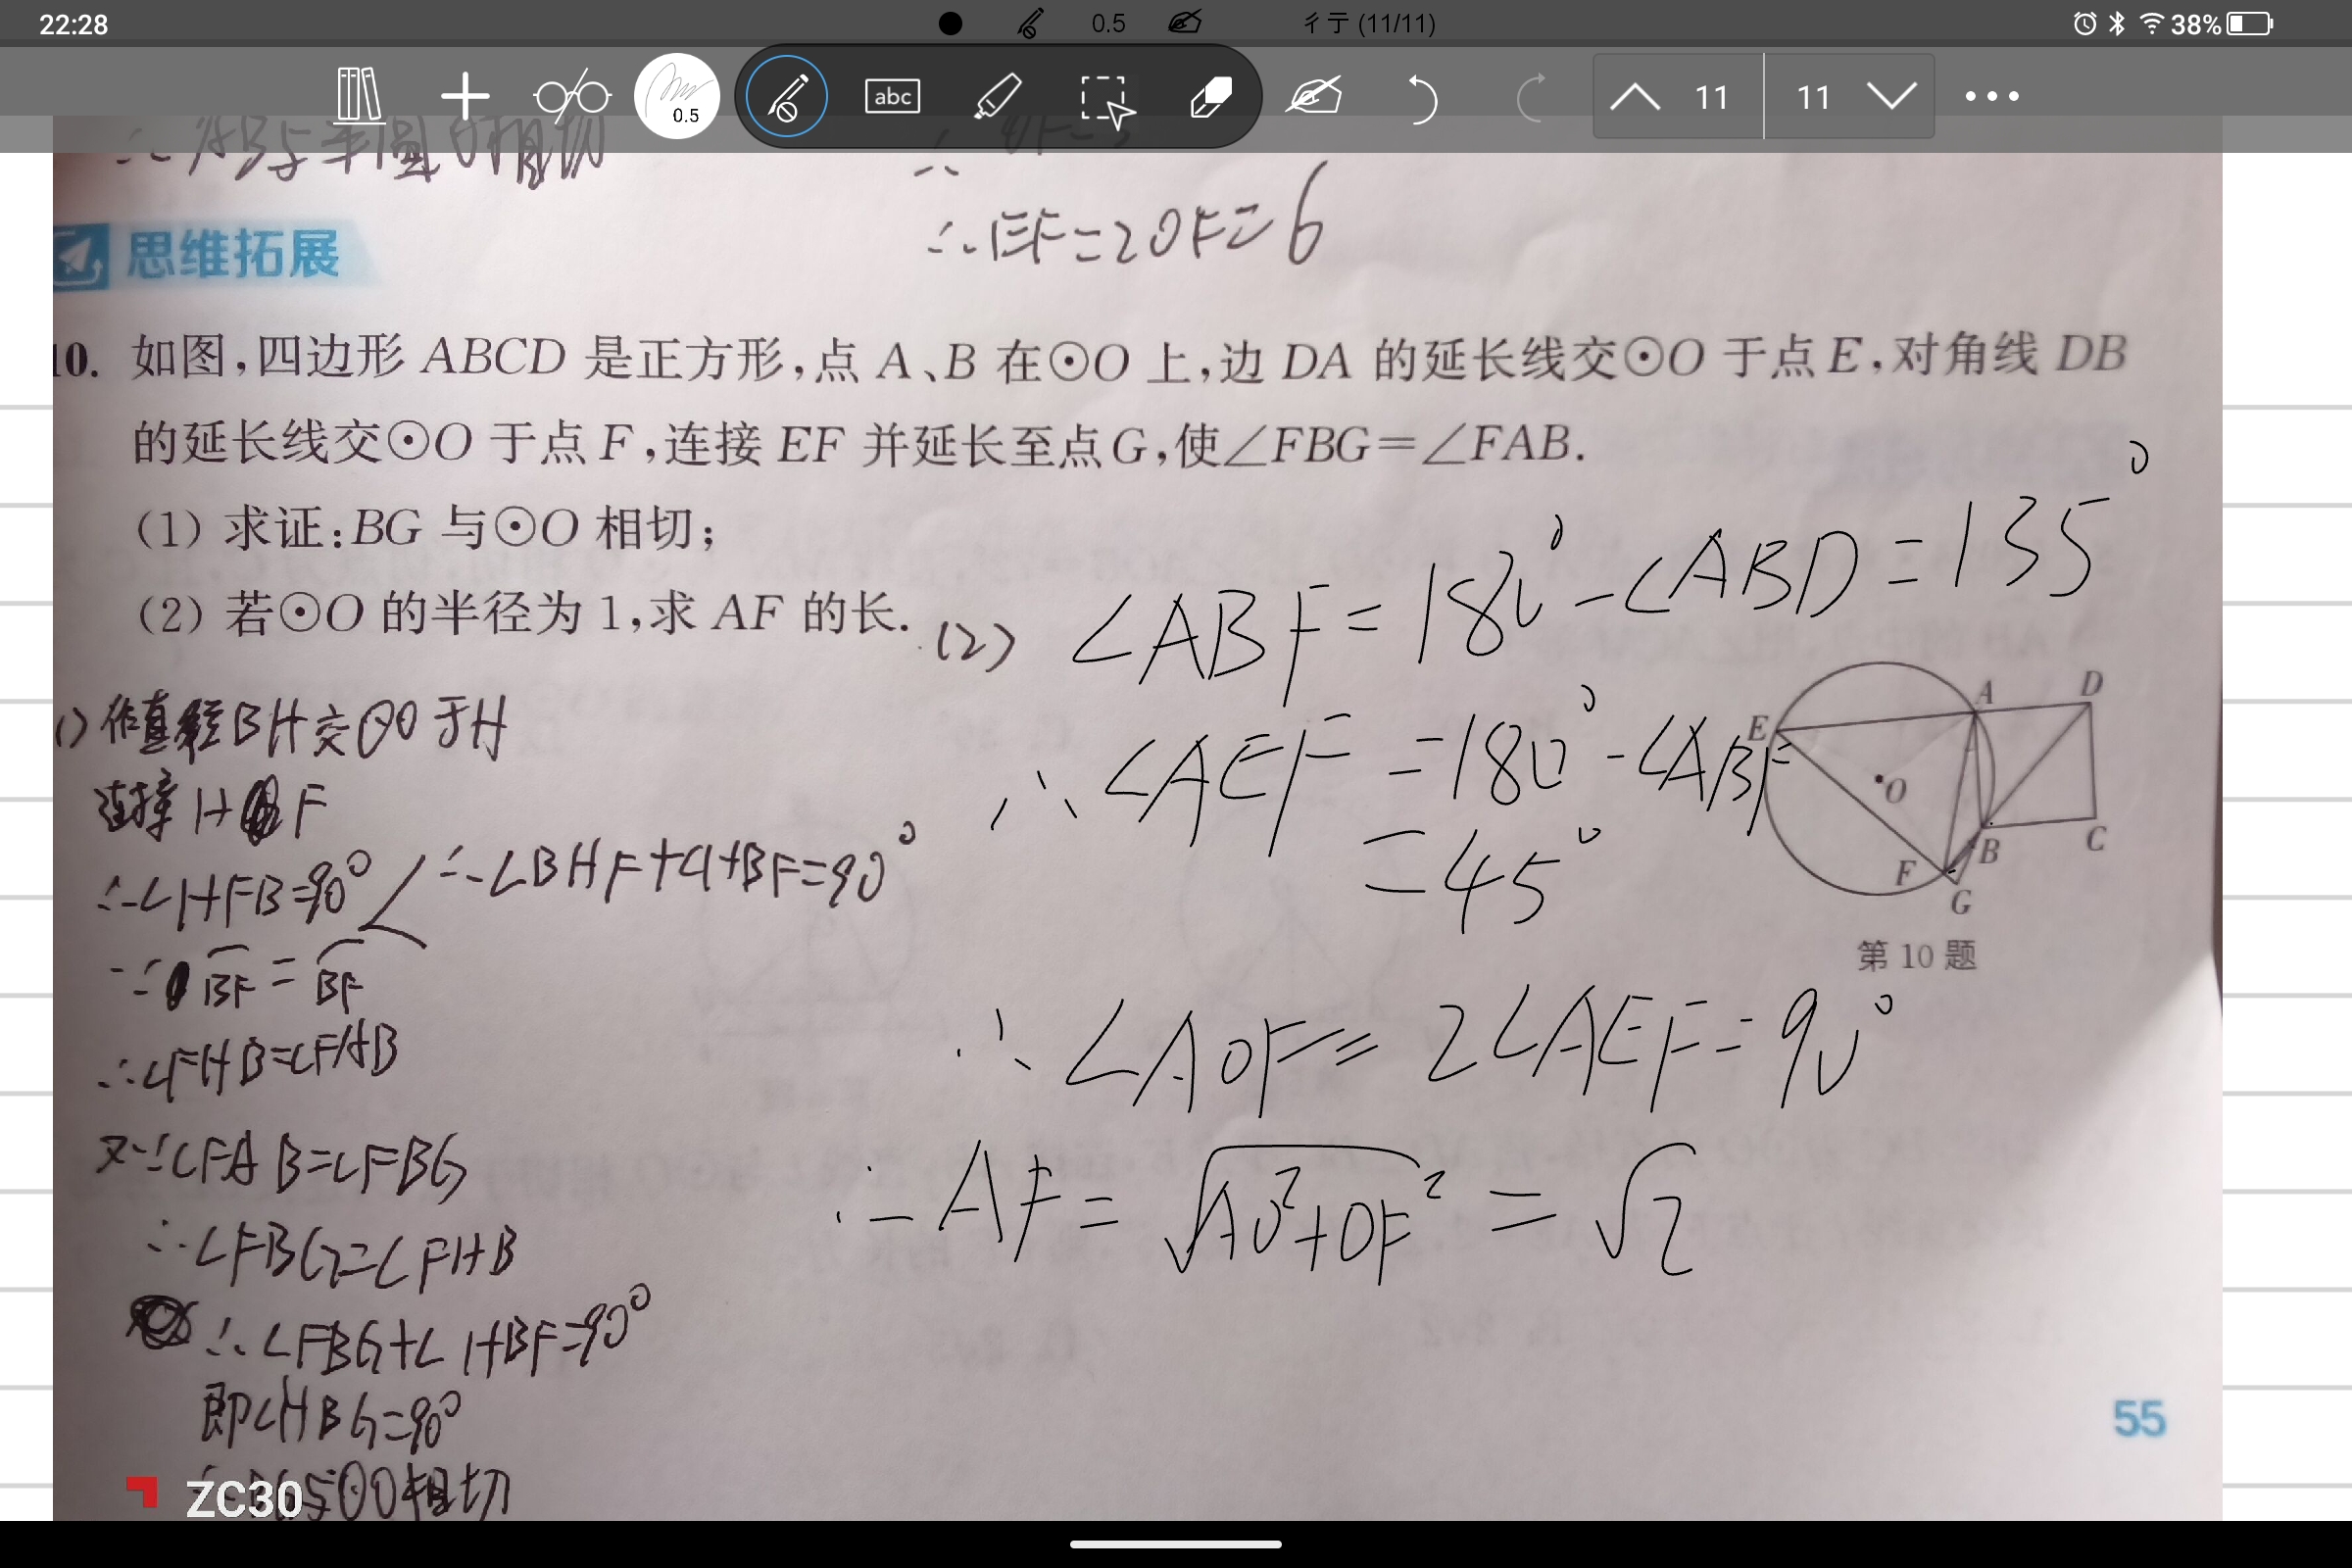 22:28
0.5
彳亍 (11/11)
38%
0.5
abc
11
11
∴AB与半圆O相切
∴EF=2OF=6
思维拓展
10. 如图,四边形 ABCD 是正方形,点 A、B 在⊙O 上,边 DA 的延长线交⊙O 于点 E,对角线 DB
的延长线交⊙O 于点 F,连接 EF 并延长至点 G,使∠FBG=∠FAB.
(1) 求证:BG 与⊙O 相切;
(2) 若⊙O 的半径为 1,求 AF 的长.
1) 作直径BH交⊙O于H
连接HF
∴∠HFB=90°
∴∠BHF+∠HBF=90°
∵BF=BF
∴∠FHB=∠FAB
又∵∠FAB=∠FBG
∴∠FBG=∠FHB
∴∠FBG+∠HBF=90°
即∠HBG=90°
∴BG与⊙O相切
(2) ∠ABF=180°-∠ABD=135°
∴∠AEF=180°-∠ABF
=45°
∴∠AOF=2∠AEF=90°
∴AF=√AO²+OF²=√2
E
A
D
O
F
B
C
G
第 10 题
55
ZC30